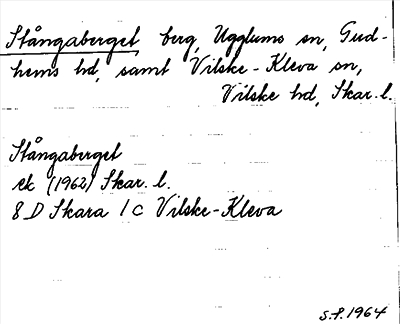 Stångaberget berg, Ugglums sn, Gud-
hems hd, samt Vilske-Kleva sn,
Vilske hd, Skar. l.
Stångaberget
ek (1962) Skar. l.
8 D Skara 1 C Vilske-Kleva
S.P. 1964